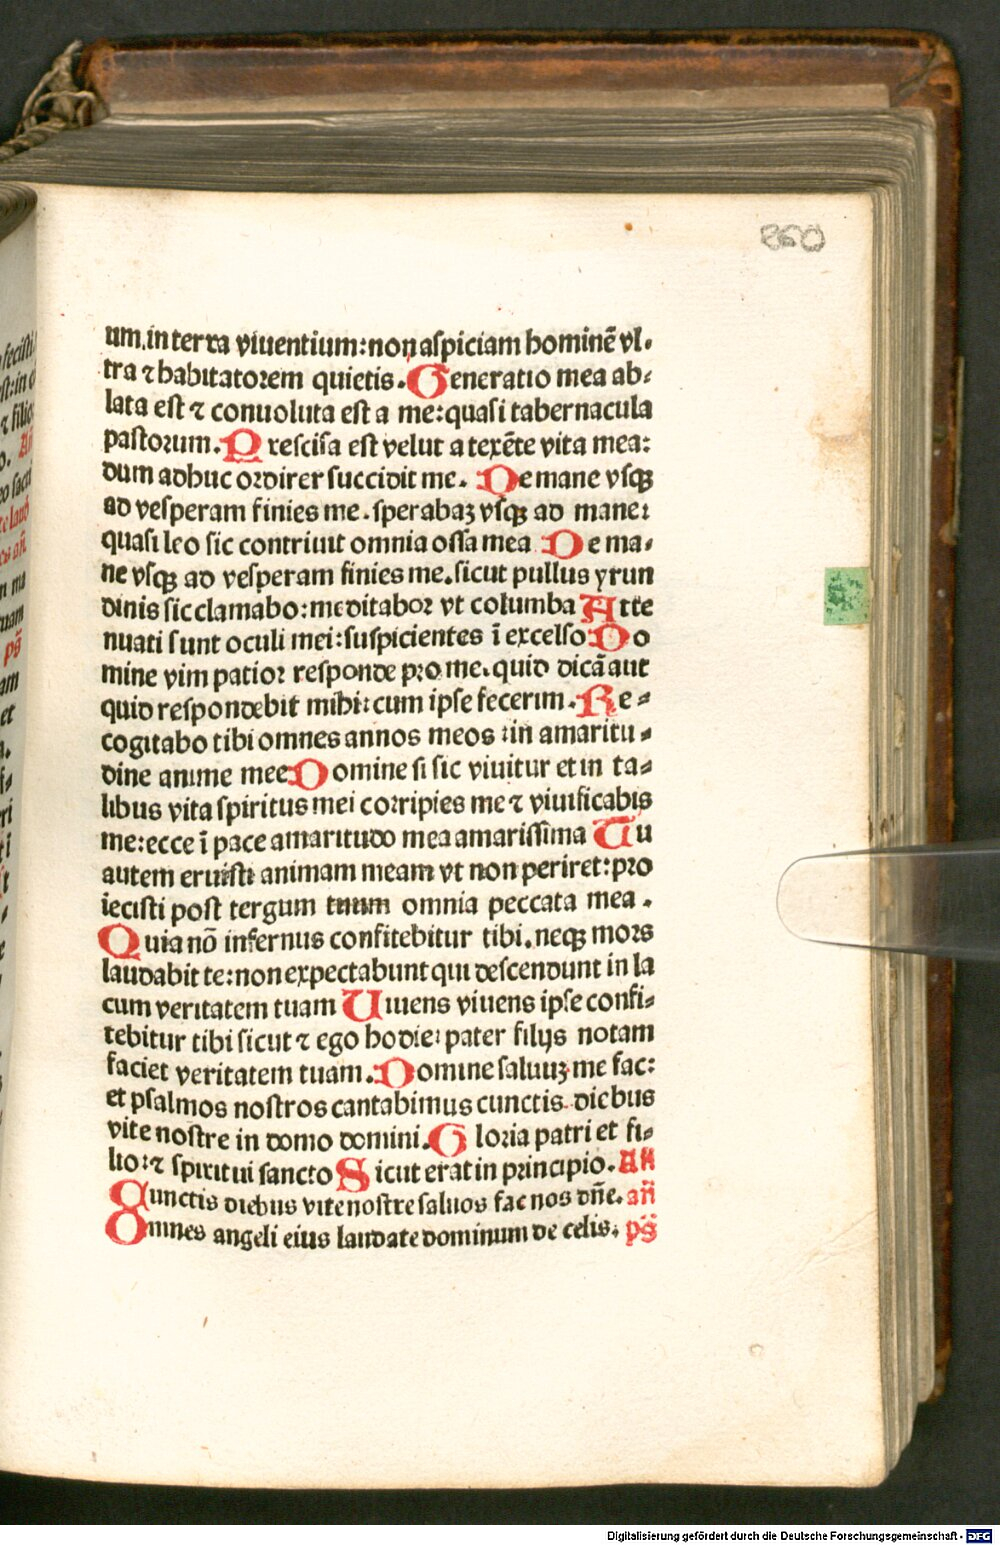 860
um.in terra viuentium:non aſpiciam hominē vl-
tra ⁊ habitatorem quietis. Generatio mea ab-
lata eſt ⁊ conuoluta eſt a me:quaſi tabernacula
paſtorum. Preſciſa eſt velut a texēte vita mea:
dum adhuc ordirer ſuccidit me. De mane vſqꝫ
ad veſperam finies me. ſperabaꝫ vſqꝫ ad mane:
quaſi leo ſic contriuit omnia oſſa mea De ma-
ne vſqꝫ ad veſperam finies me. ſicut pullus yrun
dinis ſic clamabo:meditabor vt columba Atte
nuati ſunt oculi mei:ſuſpicientes ī excelſo Do
mine vim patior reſponde pro me. quid dicā aut
quid reſpondebit mihi:cum ipſe fecerim. Re-
cogitabo tibi omnes annos meos :in amaritu-
dine anime mee Domine ſi ſic viuitur et in ta-
libus vita ſpiritus mei corripies me ⁊ viuificabis
me:ecce ī pace amaritudo mea amariſſima Tu
autem eruiſti animam meam vt non periret:pro
iecisti poſt tergum tuum omnia peccata mea.
Quia nō infernus confitebitur tibi. neqꝫ mors
laudabit te:non expectabunt qui deſcendunt in la
cum veritatem tuam Uiuens viuens ipſe confi-
tebitur tibi ſicut ⁊ ego hodie: pater filijs notam
faciet veritatem tuam. Domine ſaluuꝫ me fac:
et pſalmos noſtros cantabimus cunctis diebus
vite noſtre in domo domini. Gloria patri et fi-
lio:⁊ ſpiritui ſancto Sicut erat in principio. Añ
Cunctis diebus vite noſtre ſaluos fac nos dñe. añ
Omnes angeli eius laudate dominum de celis. p̄s
Digitalisierung gefördert durch die Deutsche Forschungsgemeinschaft - DFG